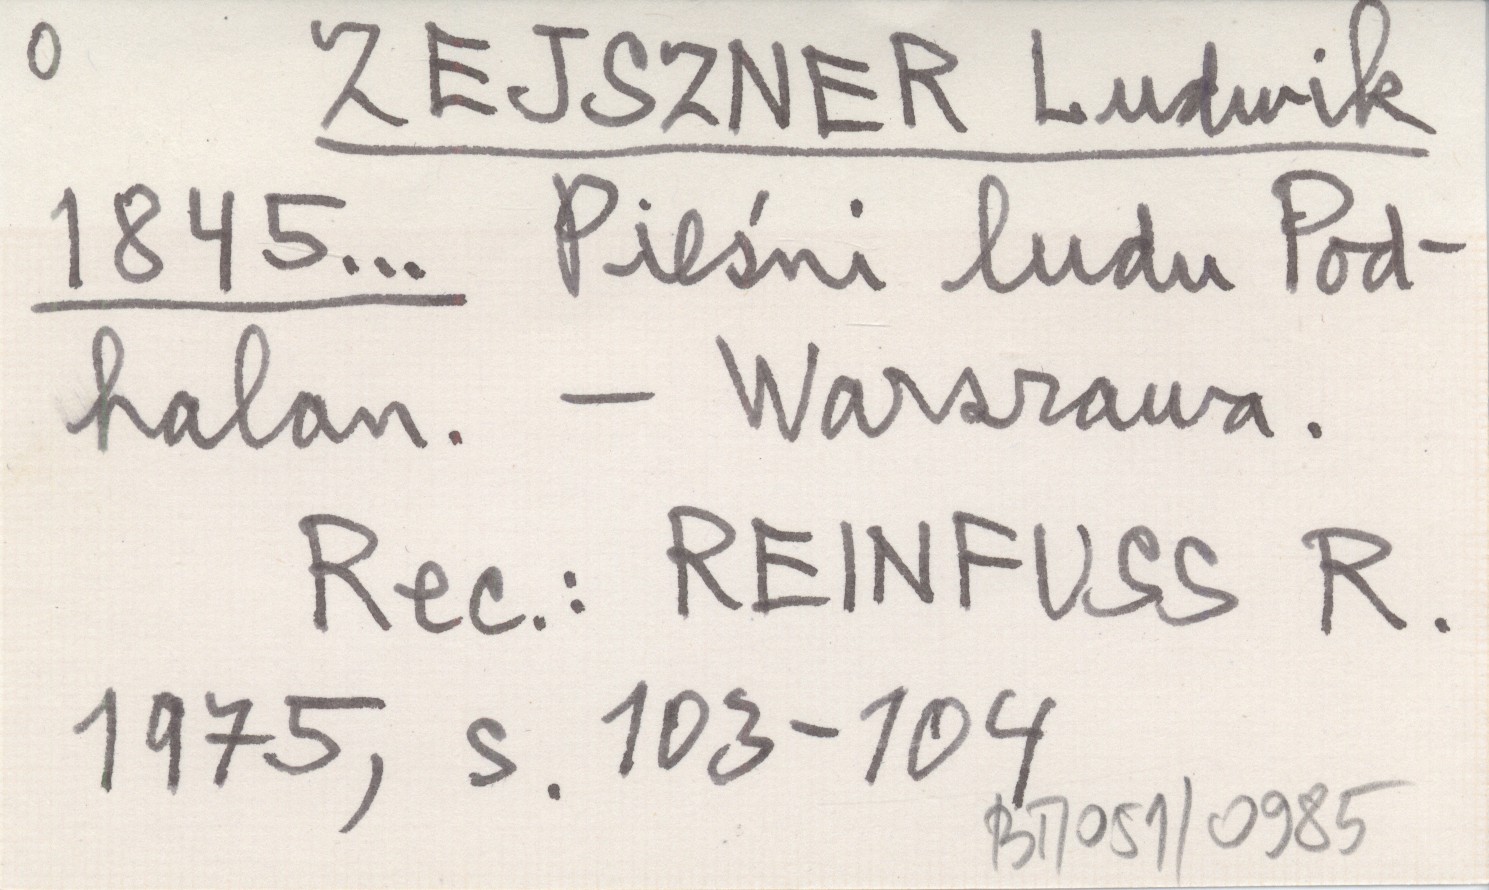 0 ZEJSZNER Ludwik
1845... Pieśni ludu Pod-
halan. – Warszawa.
Rec.: REINFUSS R.
1975, s. 103-104
BП051/0985